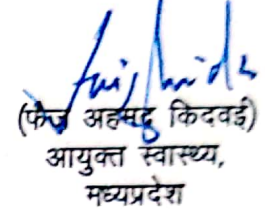 (फैज अहमद किदवई)
आयुक्त स्वास्थ्य,
मध्यप्रदेश